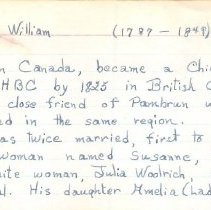 William (1787 - 1849)
n Canada, became a Chi
HBC by 1825 in British C
close friend of Pambrun w
ed in the same region.
as twice married, first to
woman named Susanne,
ite woman, Julia Woolrich,
l. His daughter Amelia (Lad